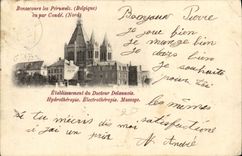 Bonsecours lez Péruwelz. (Belgique)
ou par Condé. (Nord)
Etablissement du Docteur Delaunois.
Hydrothérapie. Electrothérapie. Massage.
Bonjour Pierre
je joue bien
je mange bien
dans et je
je souhaite
pour toi
les mêmes
si tu m'écris dis moi
satisfactions
si j'ai un prix
André